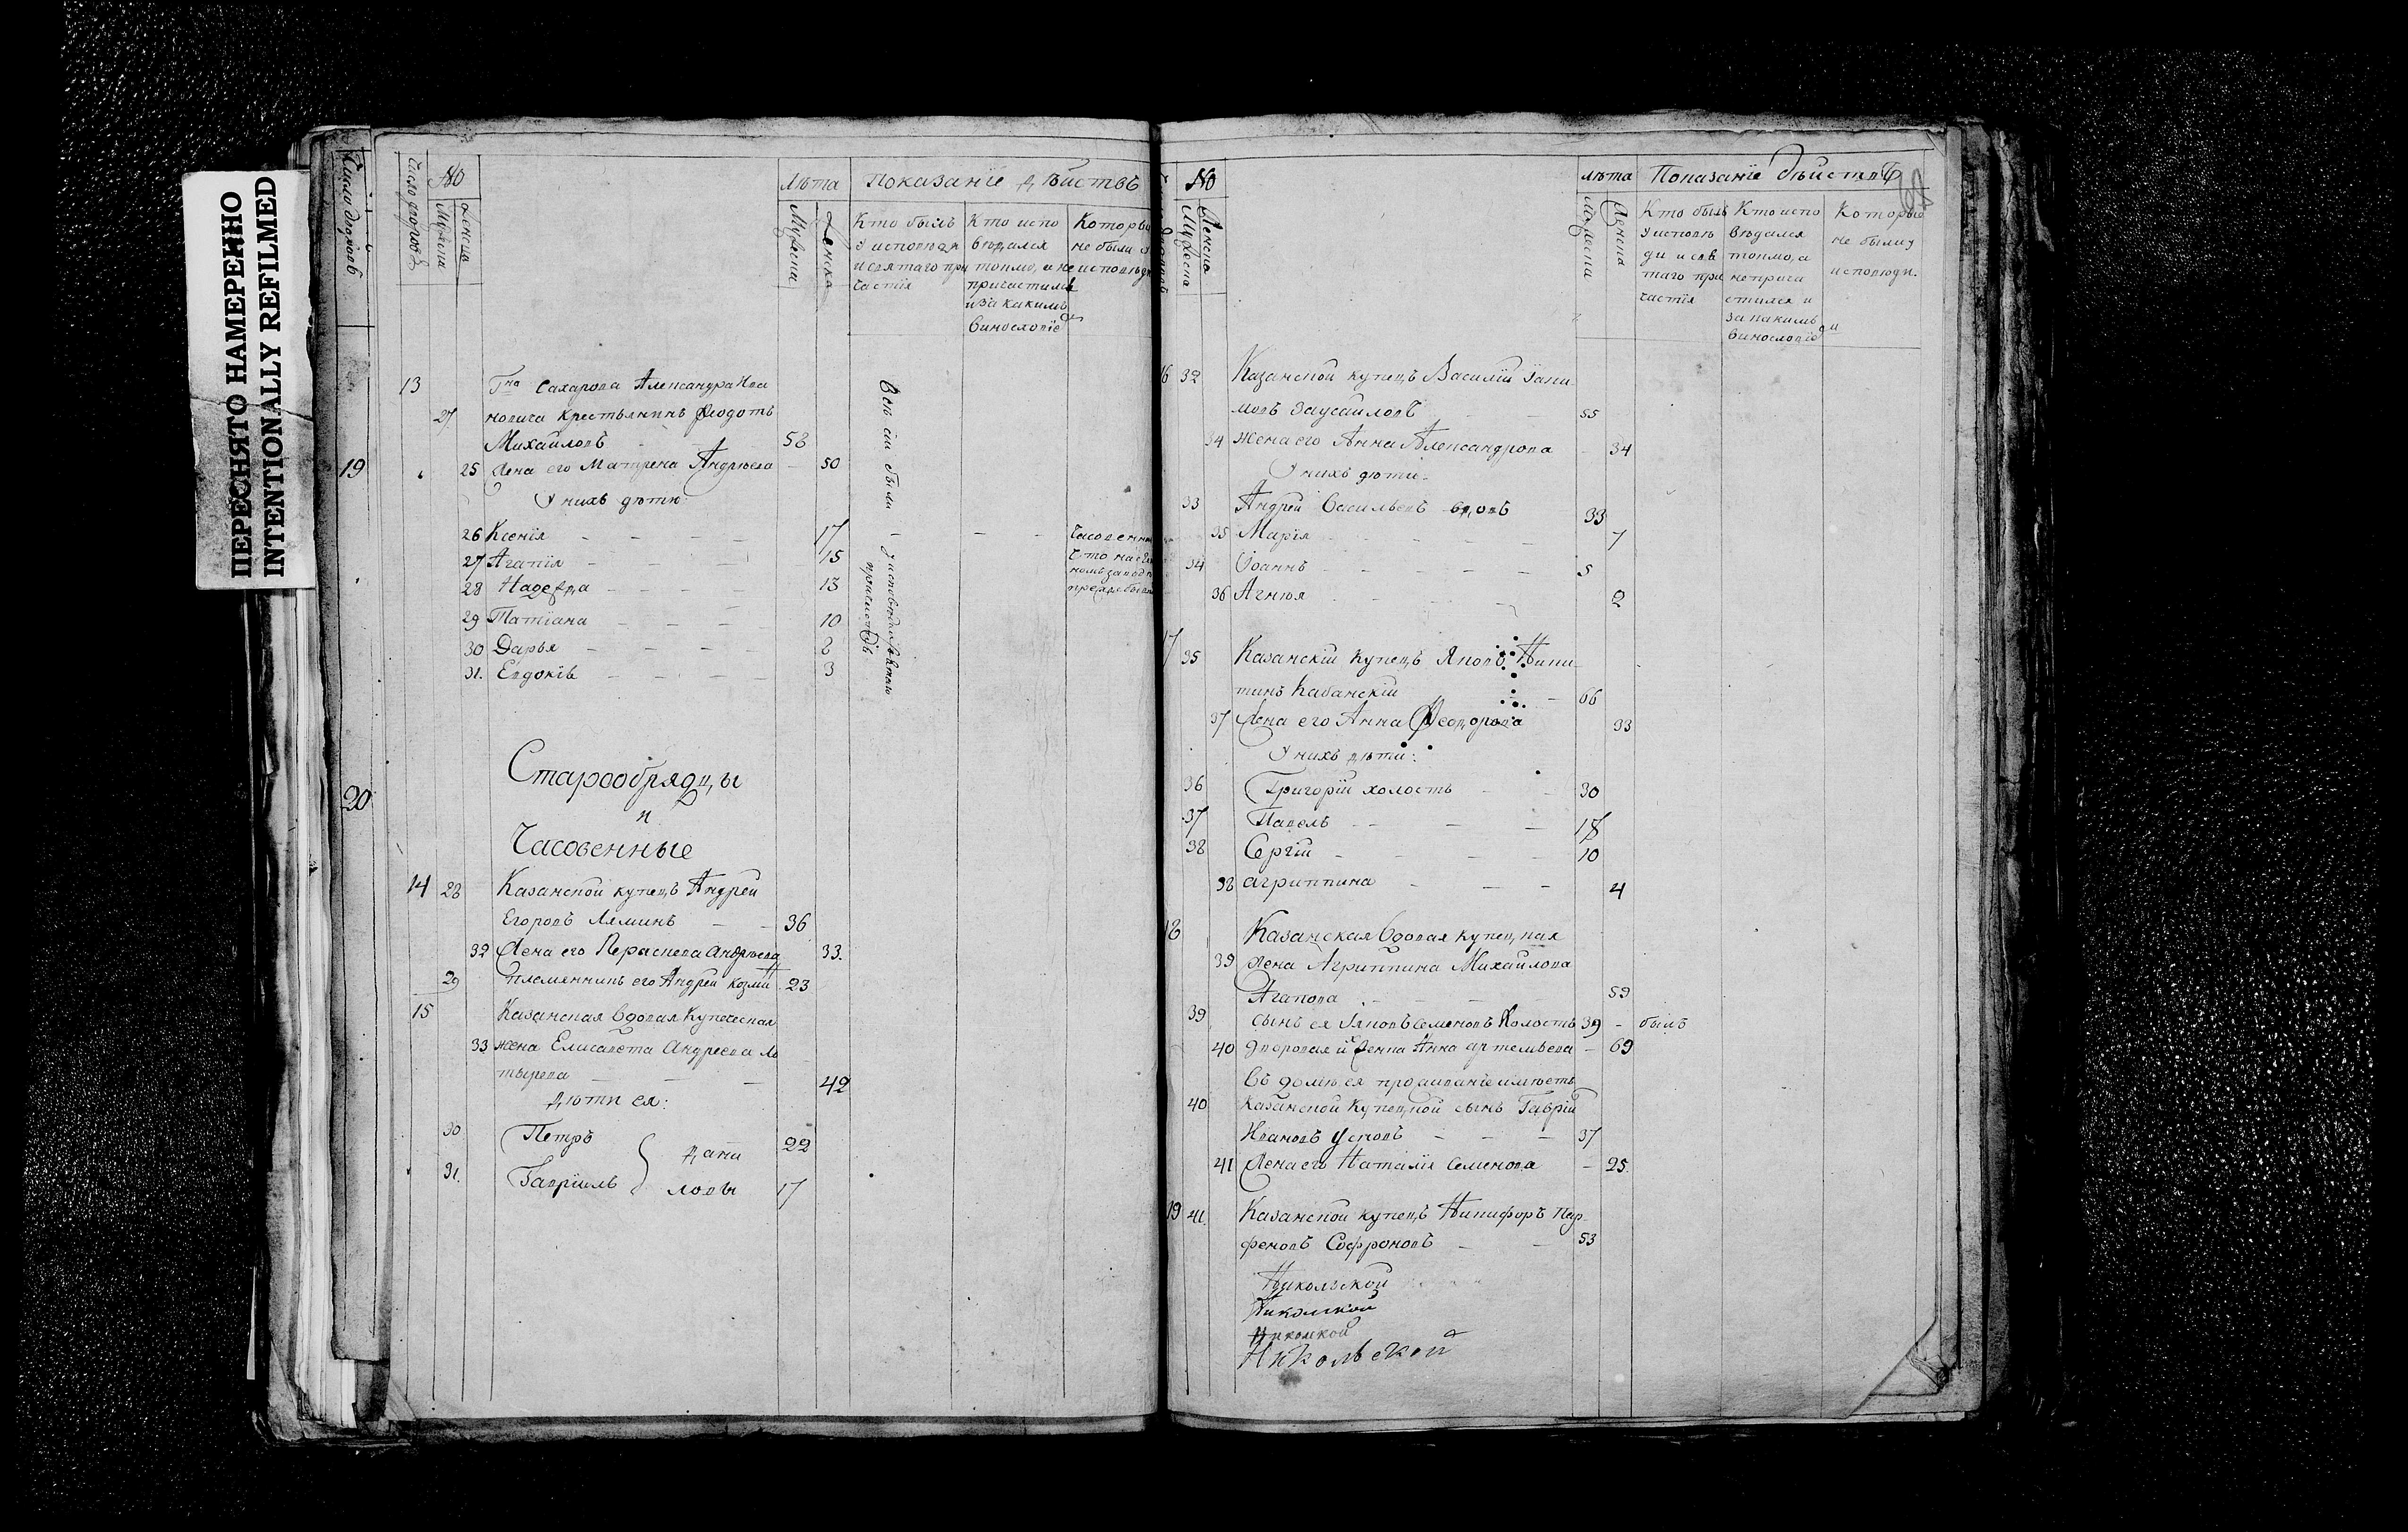 ПЕРЕСНЯТО НАМЕРЕННО
INTENTIONALLY REFILMED
Число дворовъ
19
20
Число дворовъ
№
Мужеска
Женска
Лѣта
Мужеска
Женска
Показаніе дѣйствъ
Кто былъ
у исповѣди
и святаго при
частія
Кто испо
вѣдался
токмо, а не
причастился
и за какимъ
винословіе
Которы
не были у
исповѣди
13 Гна Сахарова Александра Ива
27 новича крестьянинъ Ѳеодотъ
Михайловъ 58
25 Жена его Матрена Андрѣева 50
У нихъ дѣти:
26 Ксенія 17
27 Агапія 15
28 Надежда 13
29 Татіана 10
30 Дарья 8
31. Евдокія 3
Всѣ сіи были
у исповѣди и святаго
причастія
Старообрядцы
и
Часовенные
14 28 Казанской купецъ Андрей
Егоровъ Ляминъ 36
32 Жена его Параскева Андрѣева 33.
29 Племянникъ его Андрей Козми 23
15 Казанская вдовая купеческая
33 жена Елисавета Андреева Ла
тырева 42
Дѣти ея:
30 Петръ } Дани 22
31. Гавріилъ } ловы 17
№
Мужеска
Женска
лѣта
Мужеска
Женска
Показаніе дѣйствъ
Кто былъ
у исповѣ
ди и свя
таго при
частія
Кто испо
вѣдался
токмо, а
не прича
стился и
за какимъ
винословіе
Которые
не были у
исповѣди.
16 32 Казанской купецъ Василій Заки
мовъ Заусаиловъ 55
34 жена его Анна Александрова 34
У нихъ дѣти:
33 Андрей Васильевъ вдовъ 33
35 Марія 7
34 Іоаннъ 5
36 Агнія 2
17 35 Казанскій купецъ Яковъ Ники
тинъ Кабанскій 66
37 Жена его Анна Ѳеодорова 33
У нихъ дѣти:
36 Григорій холостъ 30
37 Павелъ 18
38 Сергій 10
38 Агриппина 4
18 Казанская вдовая купецкая
39 жена Агриппина Михайлова
Агапова 59
39 Сынъ ея Яковъ Семеновъ холостъ 39 - былъ
40 Дворовая Женка Анна Артемьева 69
Въ домѣ ея проживаніе имѣетъ
40 Казанской купецкой сынъ Гаврій
Ивановъ Усковъ 37
41 Жена его Наталія Семенова 25.
19 41. Казанской купецъ Никифоръ Пар-
феновъ Софроновъ 53
Никольской
Николской
Николской
Никольской